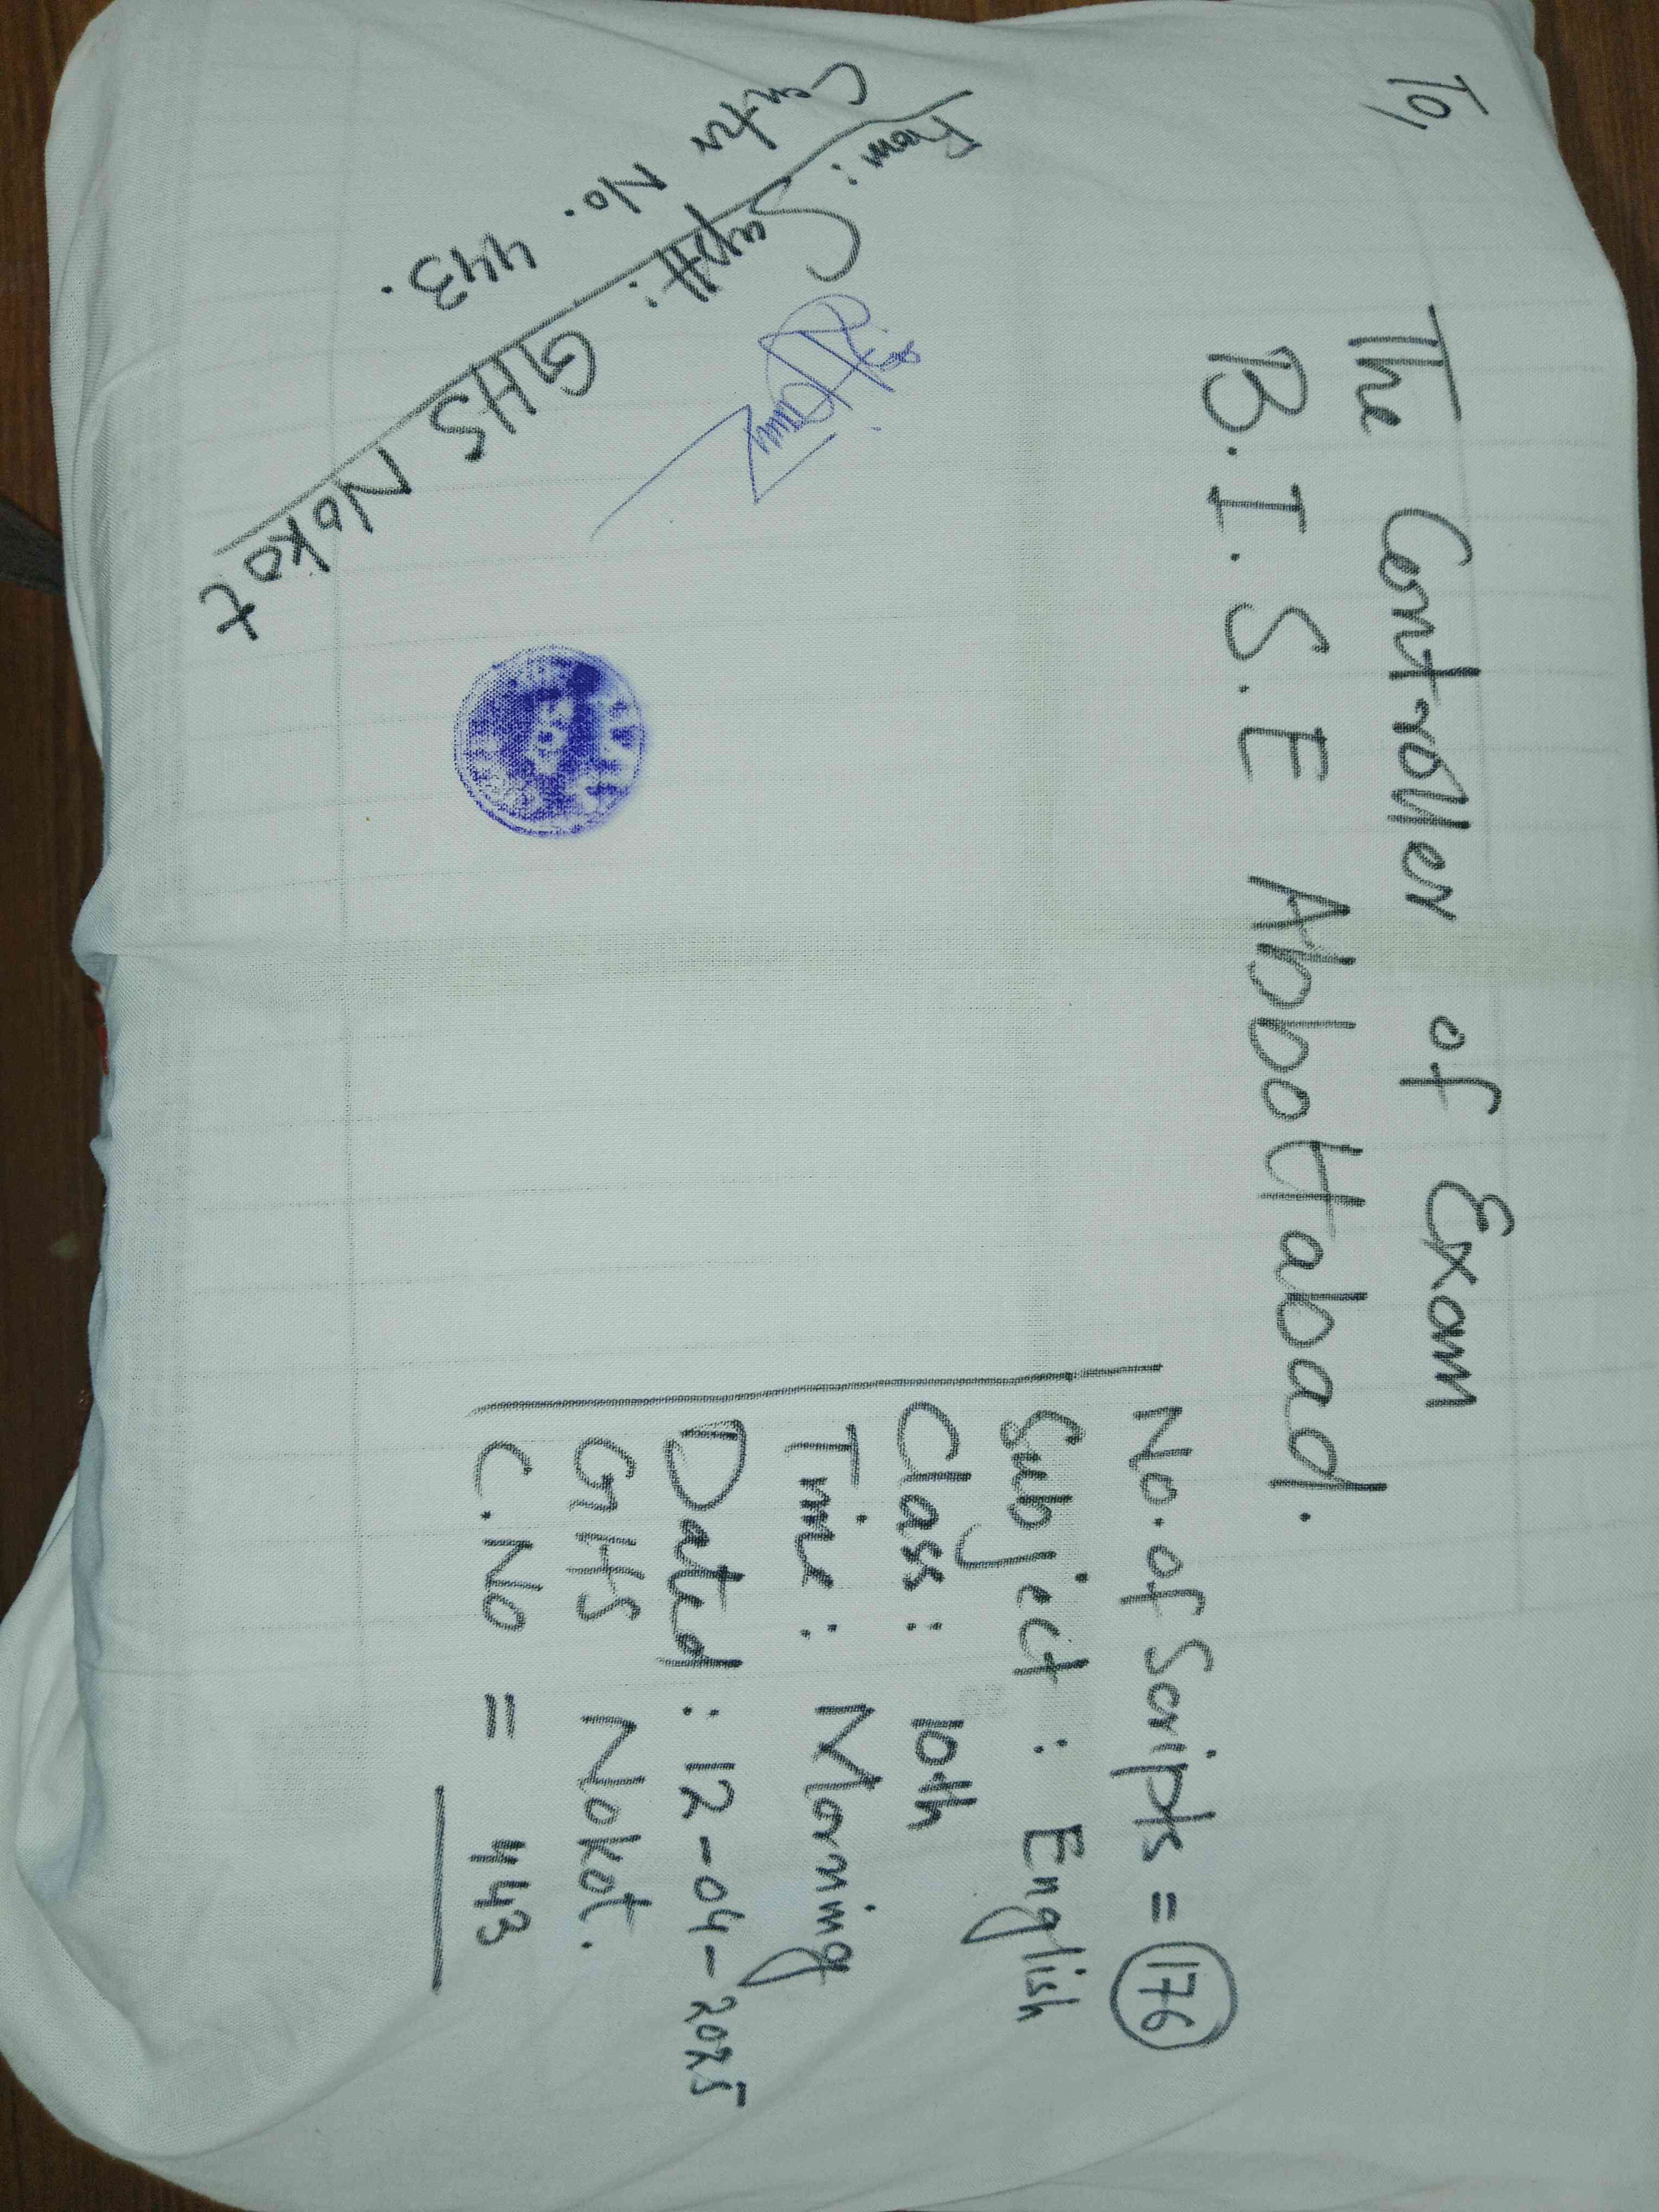 To,
The Controller of Exam
B.I.S.E Abbottabad.
No. of Scripts = 176
Subject : English
Class : 10th
Time : Morning
Dated : 12-04-2025
GHS Nokot.
C.No = 443
From : Suptt: GHS Nokot
Center No. 443.